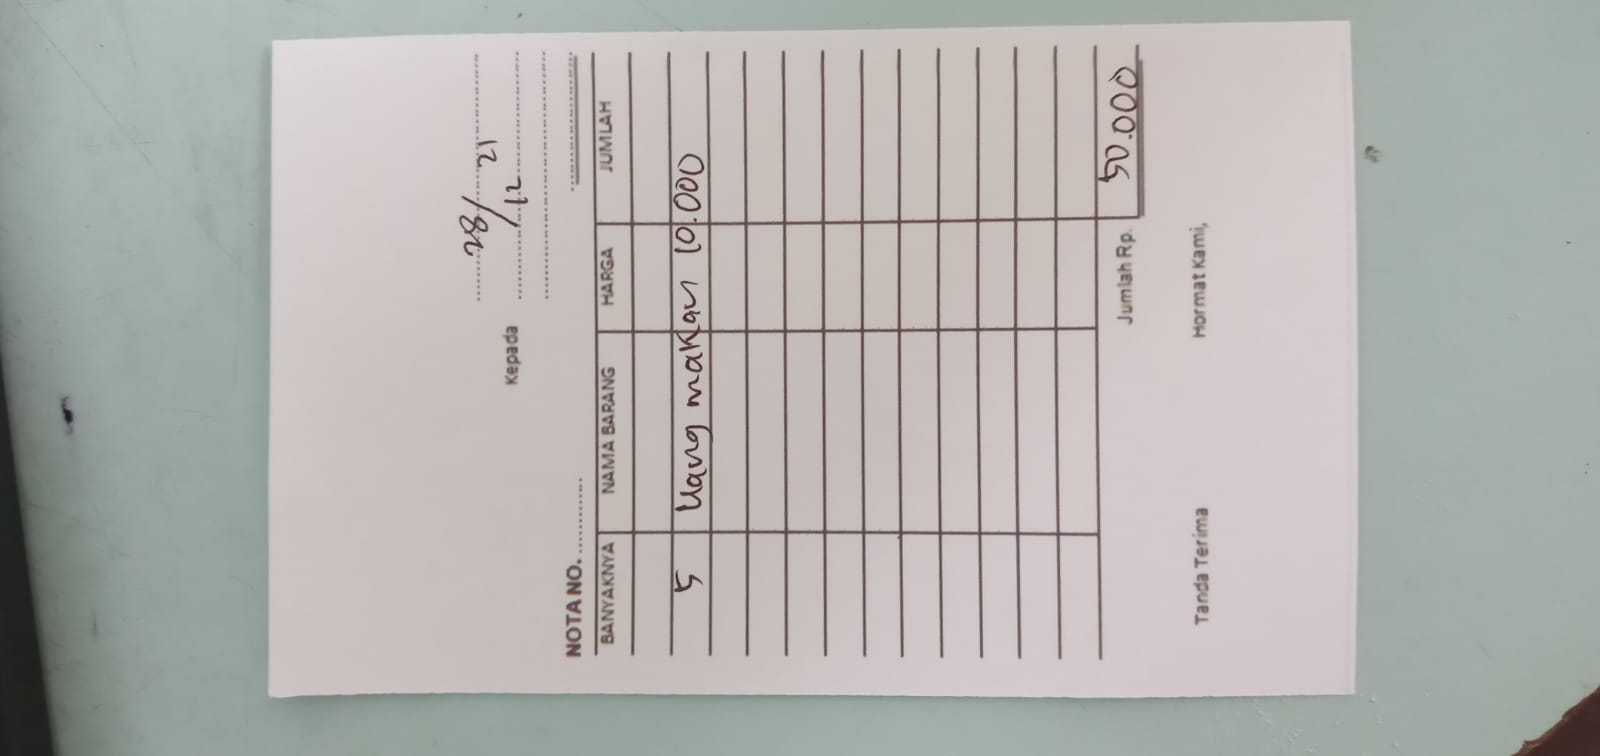 28/12 21
Kepada
NOTA NO. ............
BANYAKNYA NAMA BARANG HARGA JUMLAH
5 Uang makan 10.000
Jumlah Rp. 50.000
Tanda Terima Hormat Kami,